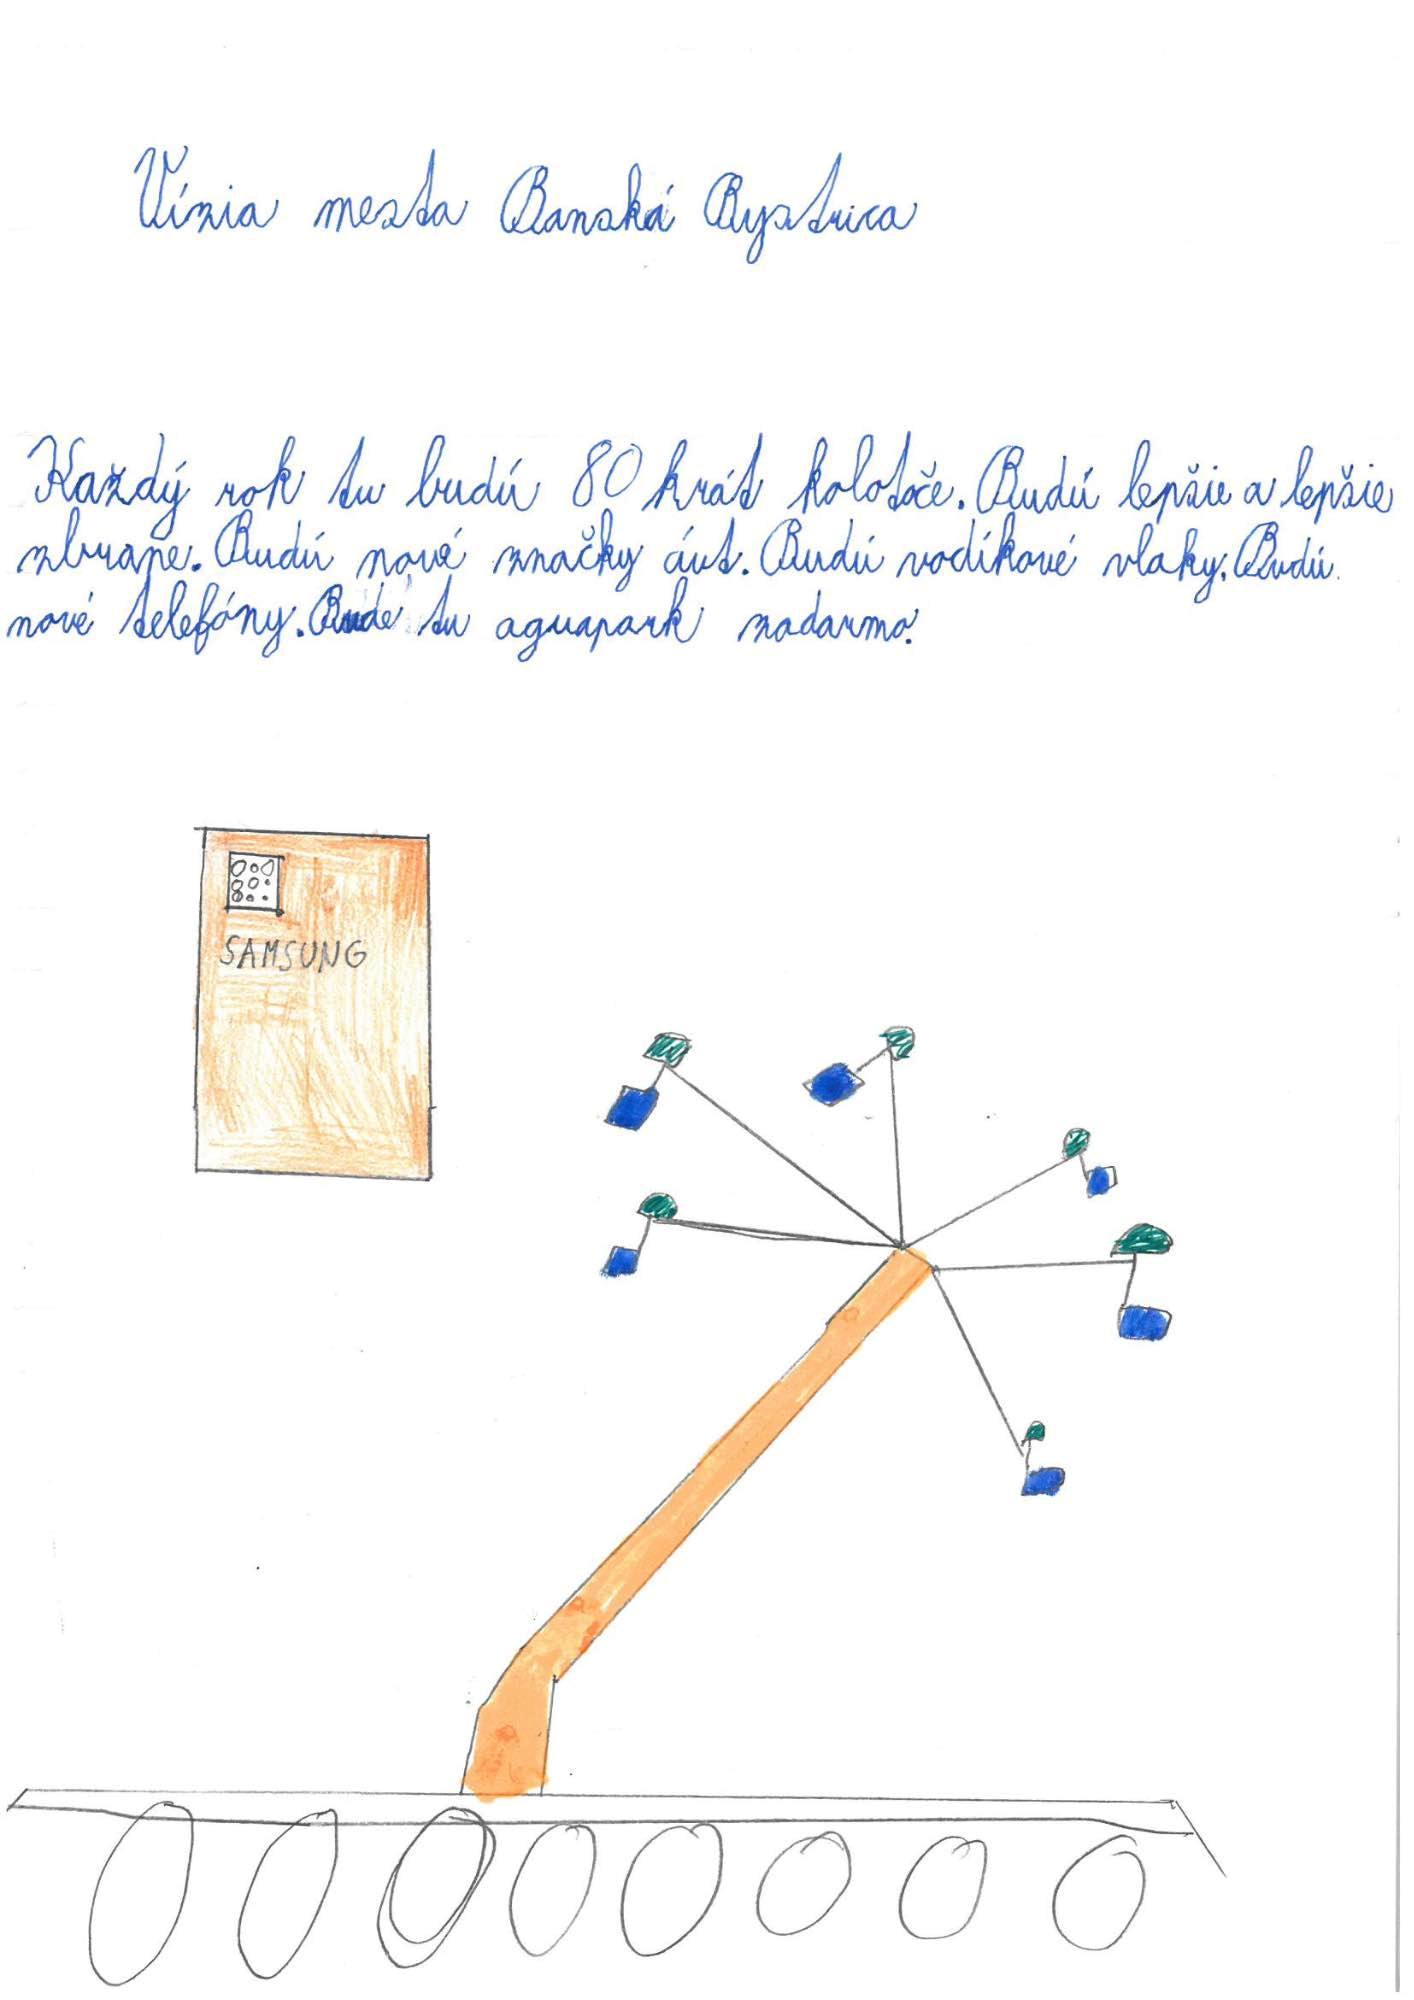 Vízia mesta Banská Bystrica
Každý rok tu budú 80 krát kolotoče. Budú lepšie a lepšie
zbrane. Budú nové značky áut. Budú vodíkové vlaky. Budú
nové telefóny. Bude tu aguapark zadarmo.
SAMSUNG